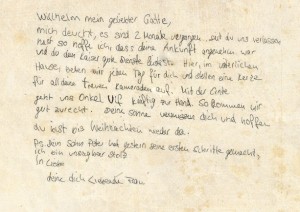 Wilhelm mein geliebter Gatte,
mich deucht, es sind 2 Monate vergangen, seit du uns verlassen
hast so hoffe ich dass deine Ankunft angenehm war
und du dem Kaiser gute Dienste Hier, im väterlichen
Hause, beten wir jeden Tag für dich und stellen eine Kerze
für all deine treuen Kameraden auf. Mit der Ernte
geht uns Onkel Ulf kräftig zur Hand. So kommen wir
gut zurecht. Deine Söhne vermissen dich und hoffen
du bist bis Weihnachten wieder da.
PS Dein Sohn Peter hat gestern seine ersten Schritte gemacht,
ich bin unsagbar stolz
In Liebe
deine dich Frau